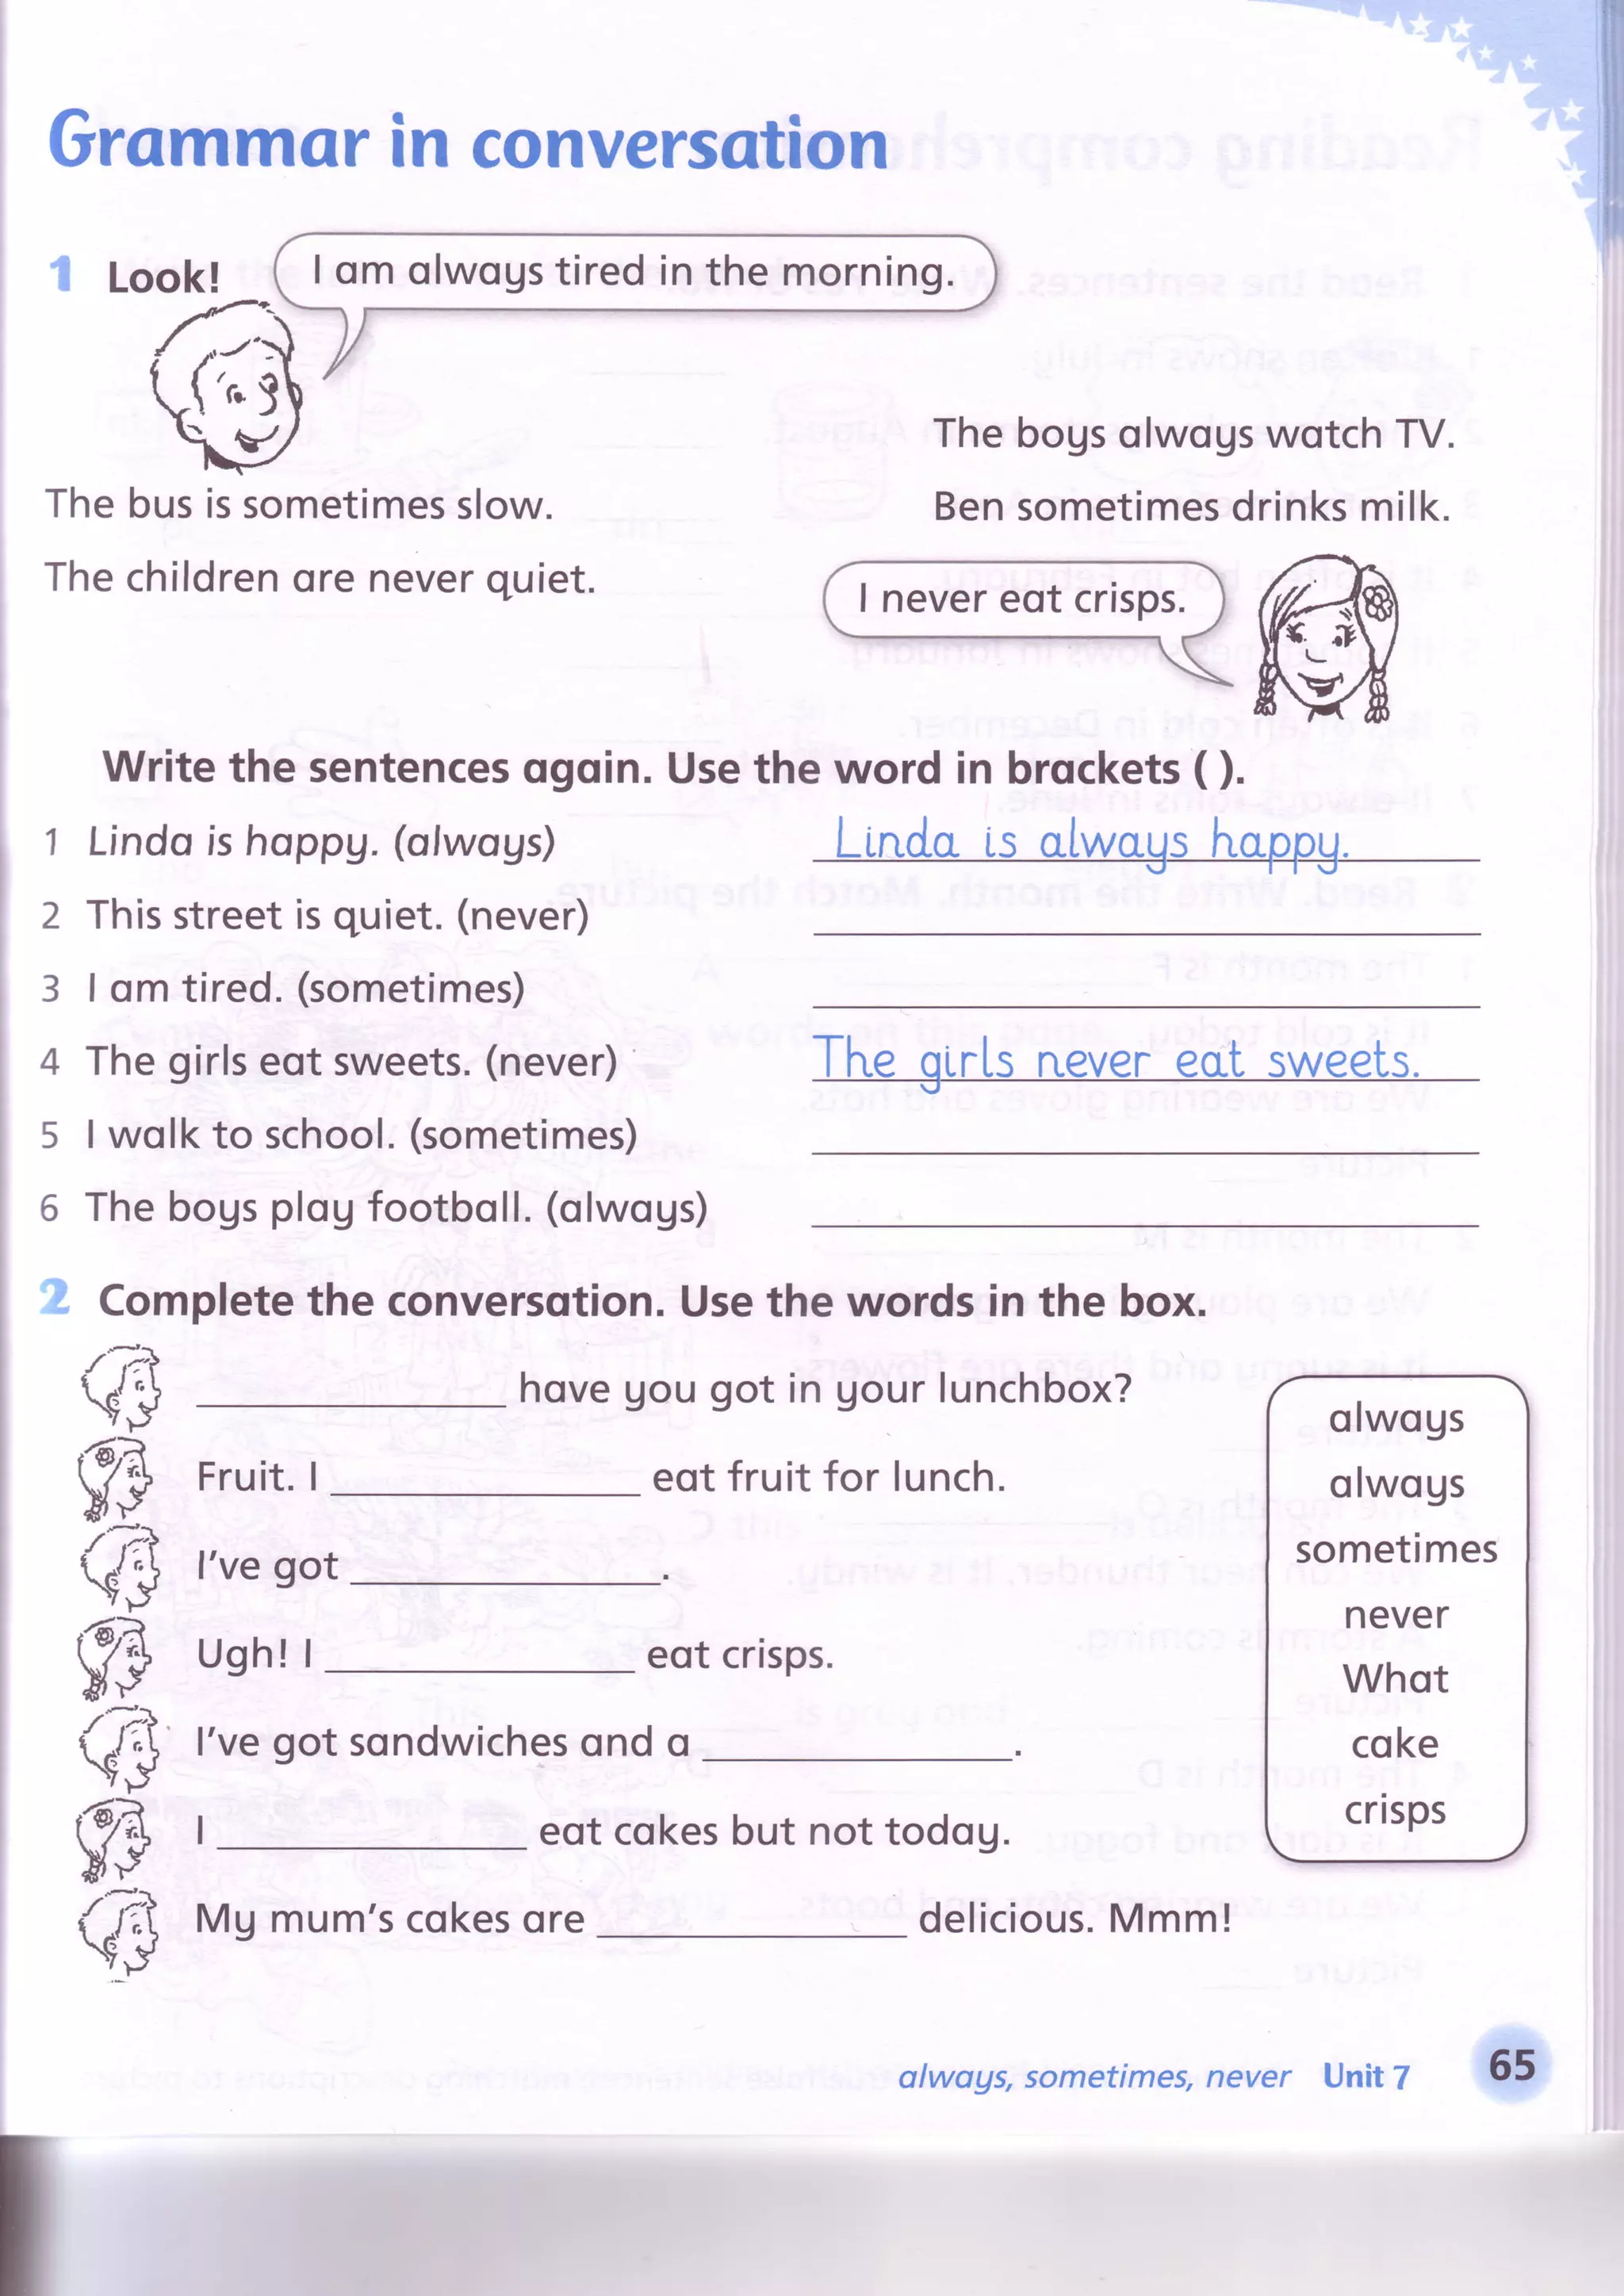 Grammar in conversation
1 Look!
I am always tired in the morning.
The bus is sometimes slow.
The children are never quiet.
The boys always watch TV.
Ben sometimes drinks milk.
I never eat crisps.
Write the sentences again. Use the word in brackets ( ).
1 Linda is happy. (always) Linda is always happy.
2 This street is quiet. (never)
3 I am tired. (sometimes)
4 The girls eat sweets. (never) The girls never eat sweets.
5 I walk to school. (sometimes)
6 The boys play football. (always)
2 Complete the conversation. Use the words in the box.
____ have you got in your lunchbox?
Fruit. I ____ eat fruit for lunch.
I've got ____.
Ugh! I ____ eat crisps.
I've got sandwiches and a ____.
I ____ eat cakes but not today.
My mum's cakes are ____ delicious. Mmm!
always
always
sometimes
never
What
cake
crisps
always, sometimes, never Unit 7 65